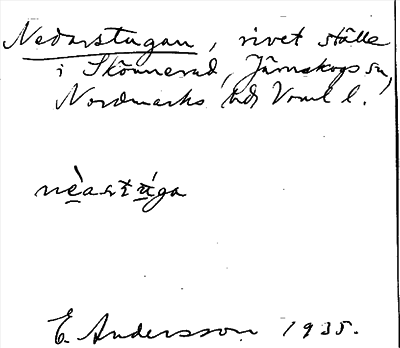 Nedarstugan, rivet ställe
i Skönnerud, Järnskogs sn,
Nordmarks hd, Vrml l.
nèastúga
E. Andersson 1935.